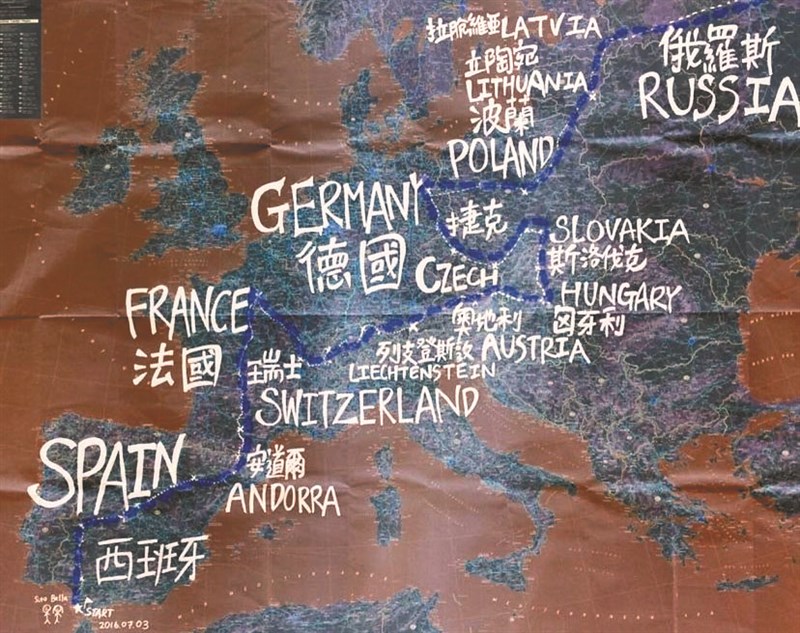 拉脫維亞LATVIA
立陶宛
LITHUANIA
波蘭
POLAND
俄羅斯
RUSSIA
GERMANY
德國
捷克
CZECH
SLOVAKIA
斯洛伐克
HUNGARY
匈牙利
FRANCE
法國
奧地利
AUSTRIA
列支登斯敦
LIECHTENSTEIN
瑞士
SWITZERLAND
SPAIN
西班牙
安道爾
ANDORRA
START
2016.07.03